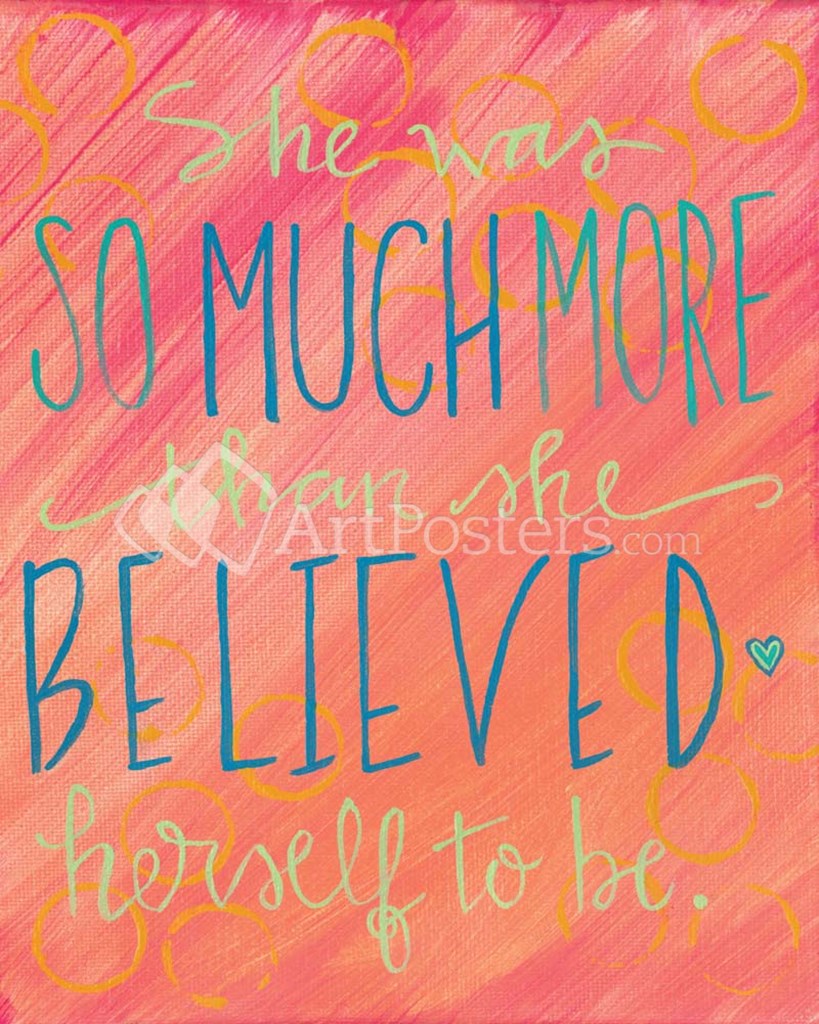 She was
SO MUCH MORE
than she
ArtPosters.com
BELIEVED
herself to be.